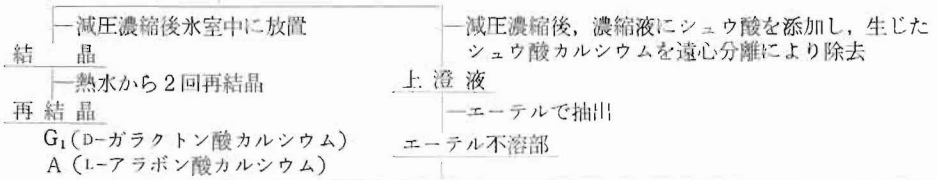 減圧濃縮後氷室中に放置
結晶
熱水から2回再結晶
再結晶
G₁(D-ガラクトン酸カルシウム)
A (L-アラボン酸カルシウム)
減圧濃縮後，濃縮液にシュウ酸を添加し，生じた
シュウ酸カルシウムを遠心分離により除去
上澄液
エーテルで抽出
エーテル不溶部